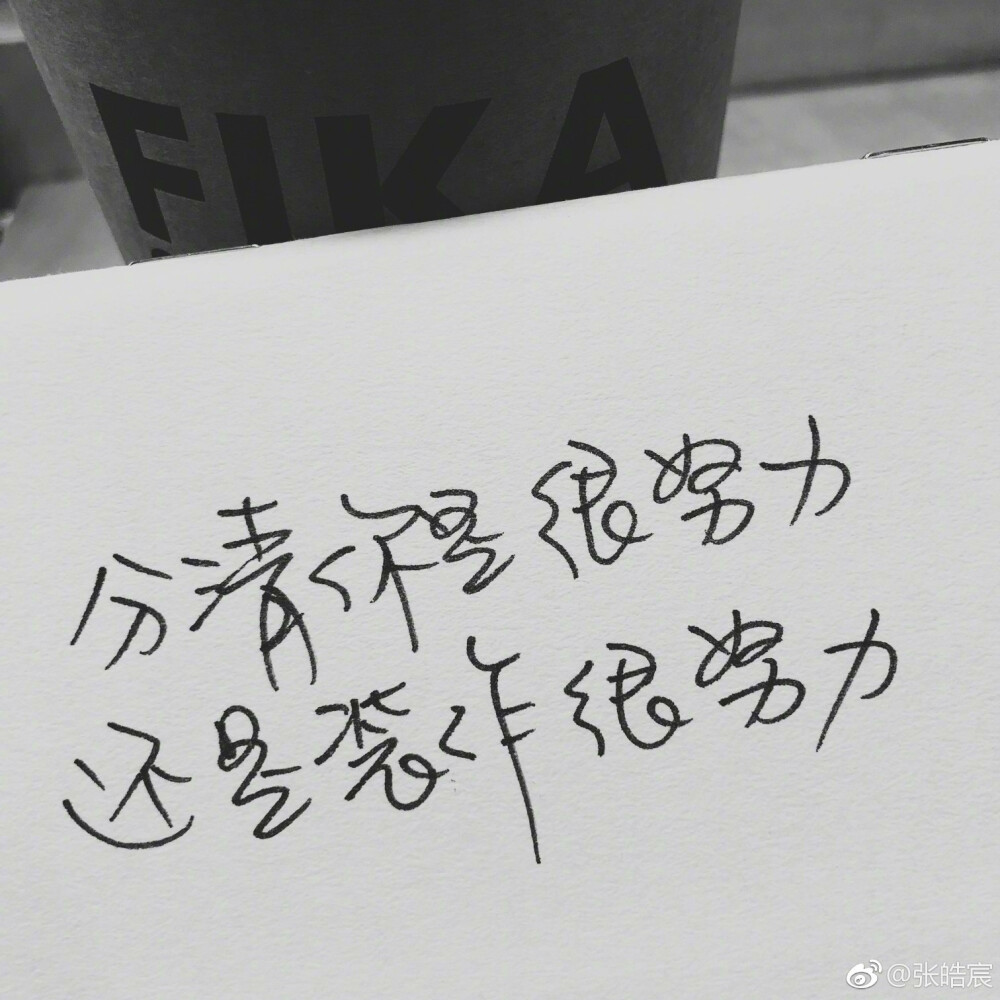 FIKA
分清你是很努力
还是装作很努力
@张皓宸